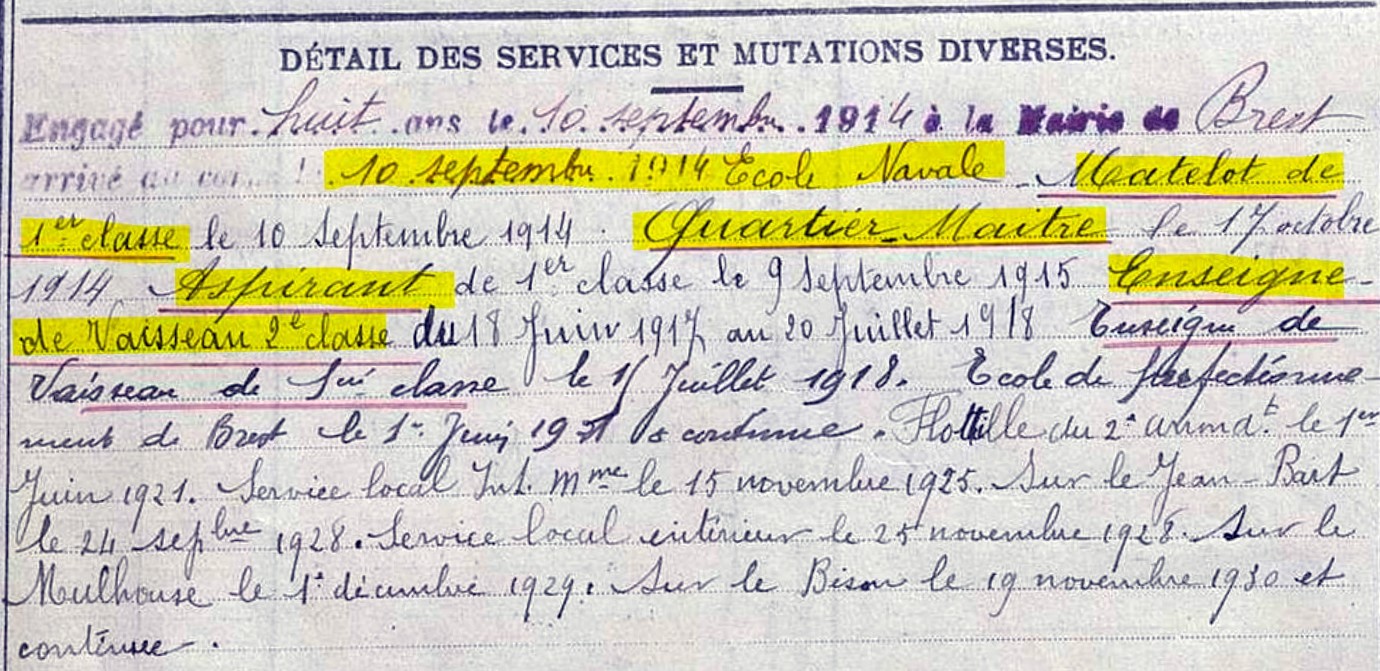 DÉTAIL DES SERVICES ET MUTATIONS DIVERSES.
Engagé pour huit ans le 10 septembre 1914 à la Mairie de Brest
arrivé au 10 septembre 1914 Ecole Navale - Matelot de
1er classe le 10 Septembre 1914. Quartier-Maitre le 17 octobre
1914 Aspirant de 1er classe le 9 Septembre 1915 Enseigne
de Vaisseau 2e classe du 18 Juin 1917 au 20 Juillet 1918 Enseigne de
Vaisseau de 1ere classe le Juillet 1918. Ecole de perfectionne-
ment de Brest le 1er Juin & continue. Flottille du 2e arrondt. le 1er
Juin 1921. Service local Int. Mme le 15 novembre 1925. Sur le Jean-Bart
le 24 sepbre 1928. Service local intérieur le 25 novembre 1928. Sur le
Mulhouse le 1er décembre 1929. Sur le Bison le 19 novembre 1930 et
continue.